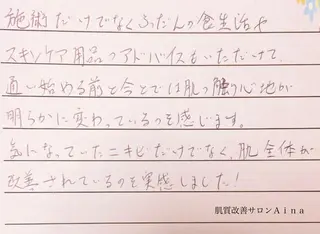 施術だけでなくふだんの食生活や
スキンケア用品のアドバイスもいただけて、
通い始める前と今とでは肌の触り心地が
明らかに変わっているのを感じます。
気になっていたニキビだけでなく、肌全体が
改善されているのを実感しました!
肌質改善サロンAina